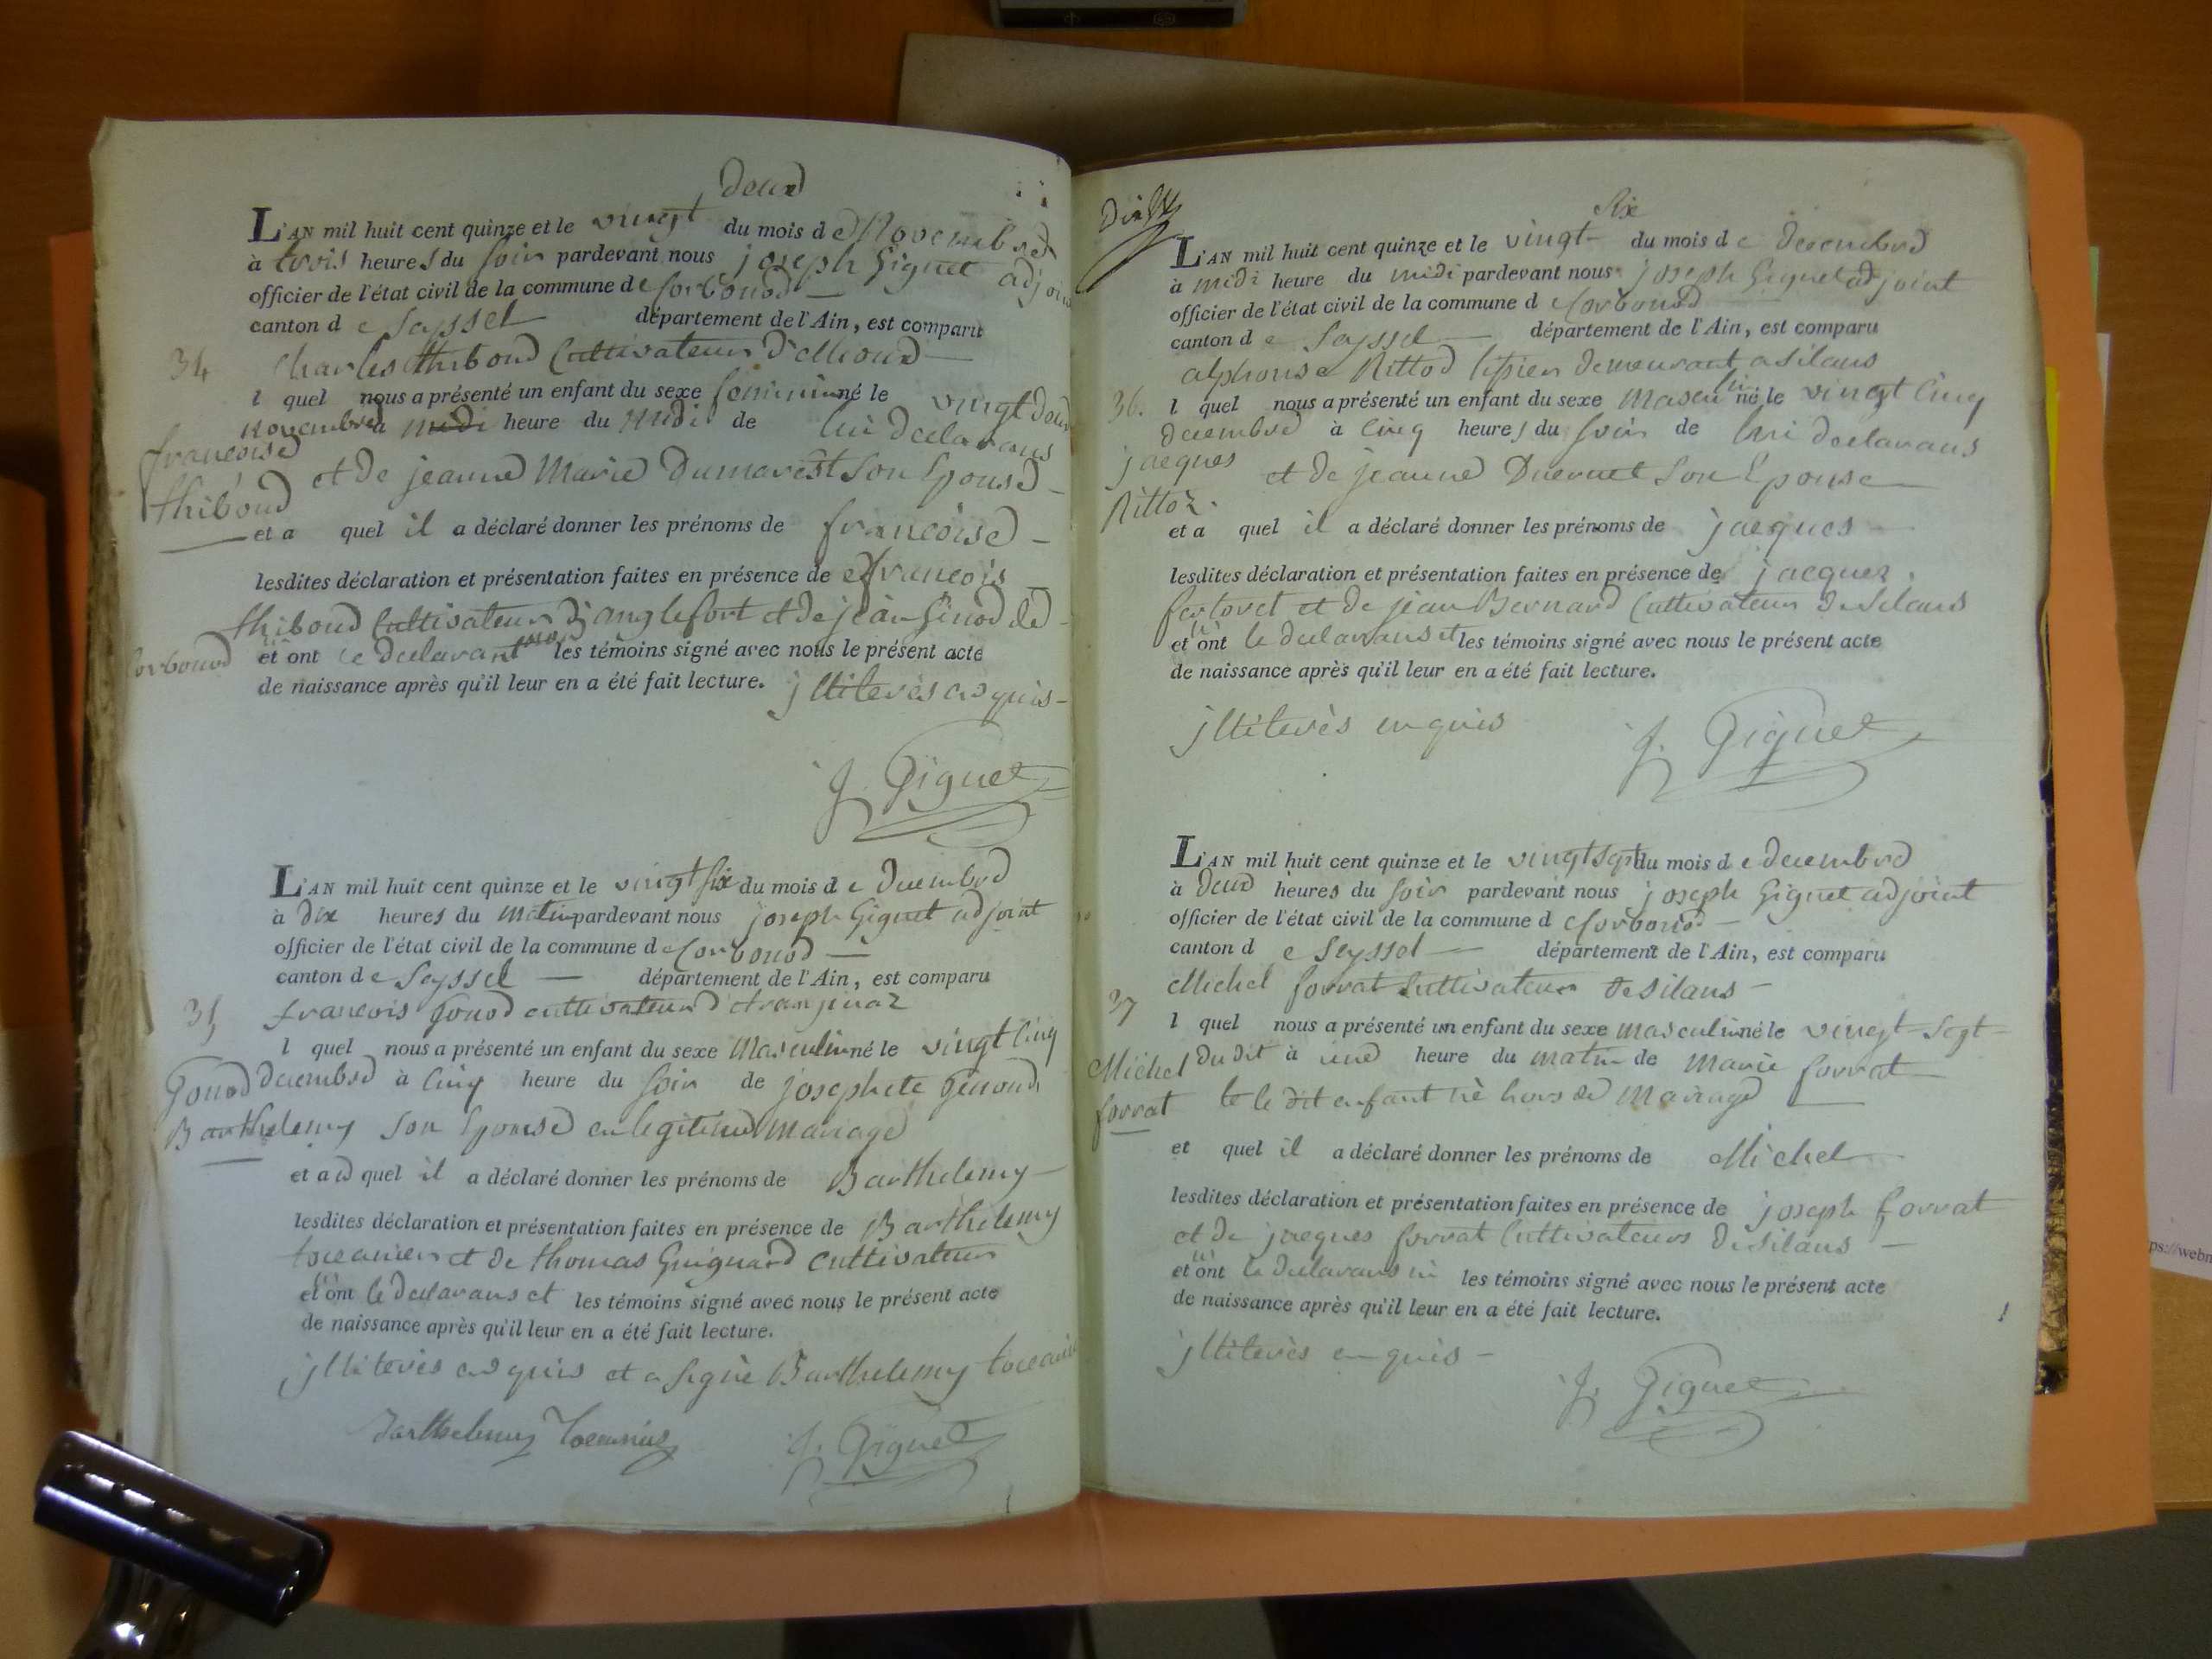 deux
L'AN mil huit cent quinze et le vingt du mois de Novembre
à trois heures du soir pardevant nous joseph Gignet adjoint
officier de l'état civil de la commune de Corbonod
canton de Seyssel département de l'Ain, est comparu
34 Charles thiboud Cultivateur
l quel nous a présenté un enfant du sexe feminin né le vingt deux
Novembre à midi heure du midi de lui declarans
francoise
et de jeanne Marie Dumarest son Epouse
thiboud
et a quel il a déclaré donner les prénoms de francoise
lesdites déclaration et présentation faites en présence de francois
thiboud Cultivateur d'anglefort et de jean Ginod de
Corbonod et ont le declarant les témoins signé avec nous le présent acte
de naissance après qu'il leur en a été fait lecture. jlliterès enquis
J. Gignet
L'AN mil huit cent quinze et le vingt six du mois de decembre
à dix heures du matin pardevant nous joseph Gignet adjoint
officier de l'état civil de la commune de Corbonod
canton de Seyssel département de l'Ain, est comparu
35 francois Gonod cultivateur
l quel nous a présenté un enfant du sexe Masculin né le vingt cinq
Gonod decembre à cinq heure du soir de josephete Genoud
Barthelemy son Epouse en legitime mariage
et a quel il a déclaré donner les prénoms de Barthelemy
lesdites déclaration et présentation faites en présence de Barthelemy
et de thomas Guignard cultivateur
et ont le declarans et les témoins signé avec nous le présent acte
de naissance après qu'il leur en a été fait lecture.
jlliterès enquis et a signé Barthelemy
Barthelemy
J. Gignet
Dix
six
L'AN mil huit cent quinze et le vingt du mois de decembre
à midi heure du midi pardevant nous joseph Gignet adjoint
officier de l'état civil de la commune d Corbonod
canton de Seyssel département de l'Ain, est comparu
alphonse Rittod demeurant a silans
36. l quel nous a présenté un enfant du sexe Masculin né le vingt cinq
decembre à cinq heures du soir de lui declarans
jacques
et de jeanne Ducruet son Epouse
Rittoz.
et a quel il a déclaré donner les prénoms de jacques
lesdites déclaration et présentation faites en présence de jacques
fertoret et de jean Bernard Cultivateur de silans
et ont le declarans et les témoins signé avec nous le présent acte
de naissance après qu'il leur en a été fait lecture.
jlliterès enquis
J. Gignet
L'AN mil huit cent quinze et le vingt sept du mois de decembre
à deux heures du soir pardevant nous joseph Gignet adjoint
officier de l'état civil de la commune d Corbonod
canton de Seyssel département de l'Ain, est comparu
Michel forrat Cultivateur de silans
37 l quel nous a présenté un enfant du sexe masculin né le vingt sept
Michel dudit à une heure du matin de Marie forrat
forrat le dit enfant né hors de Mariage
et quel il a déclaré donner les prénoms de Michel
lesdites déclaration et présentation faites en présence de joseph forrat
et de jacques forrat Cultivateurs de silans
et ont le declarans ni les témoins signé avec nous le présent acte
de naissance après qu'il leur en a été fait lecture.
jlliterès enquis
J. Gignet